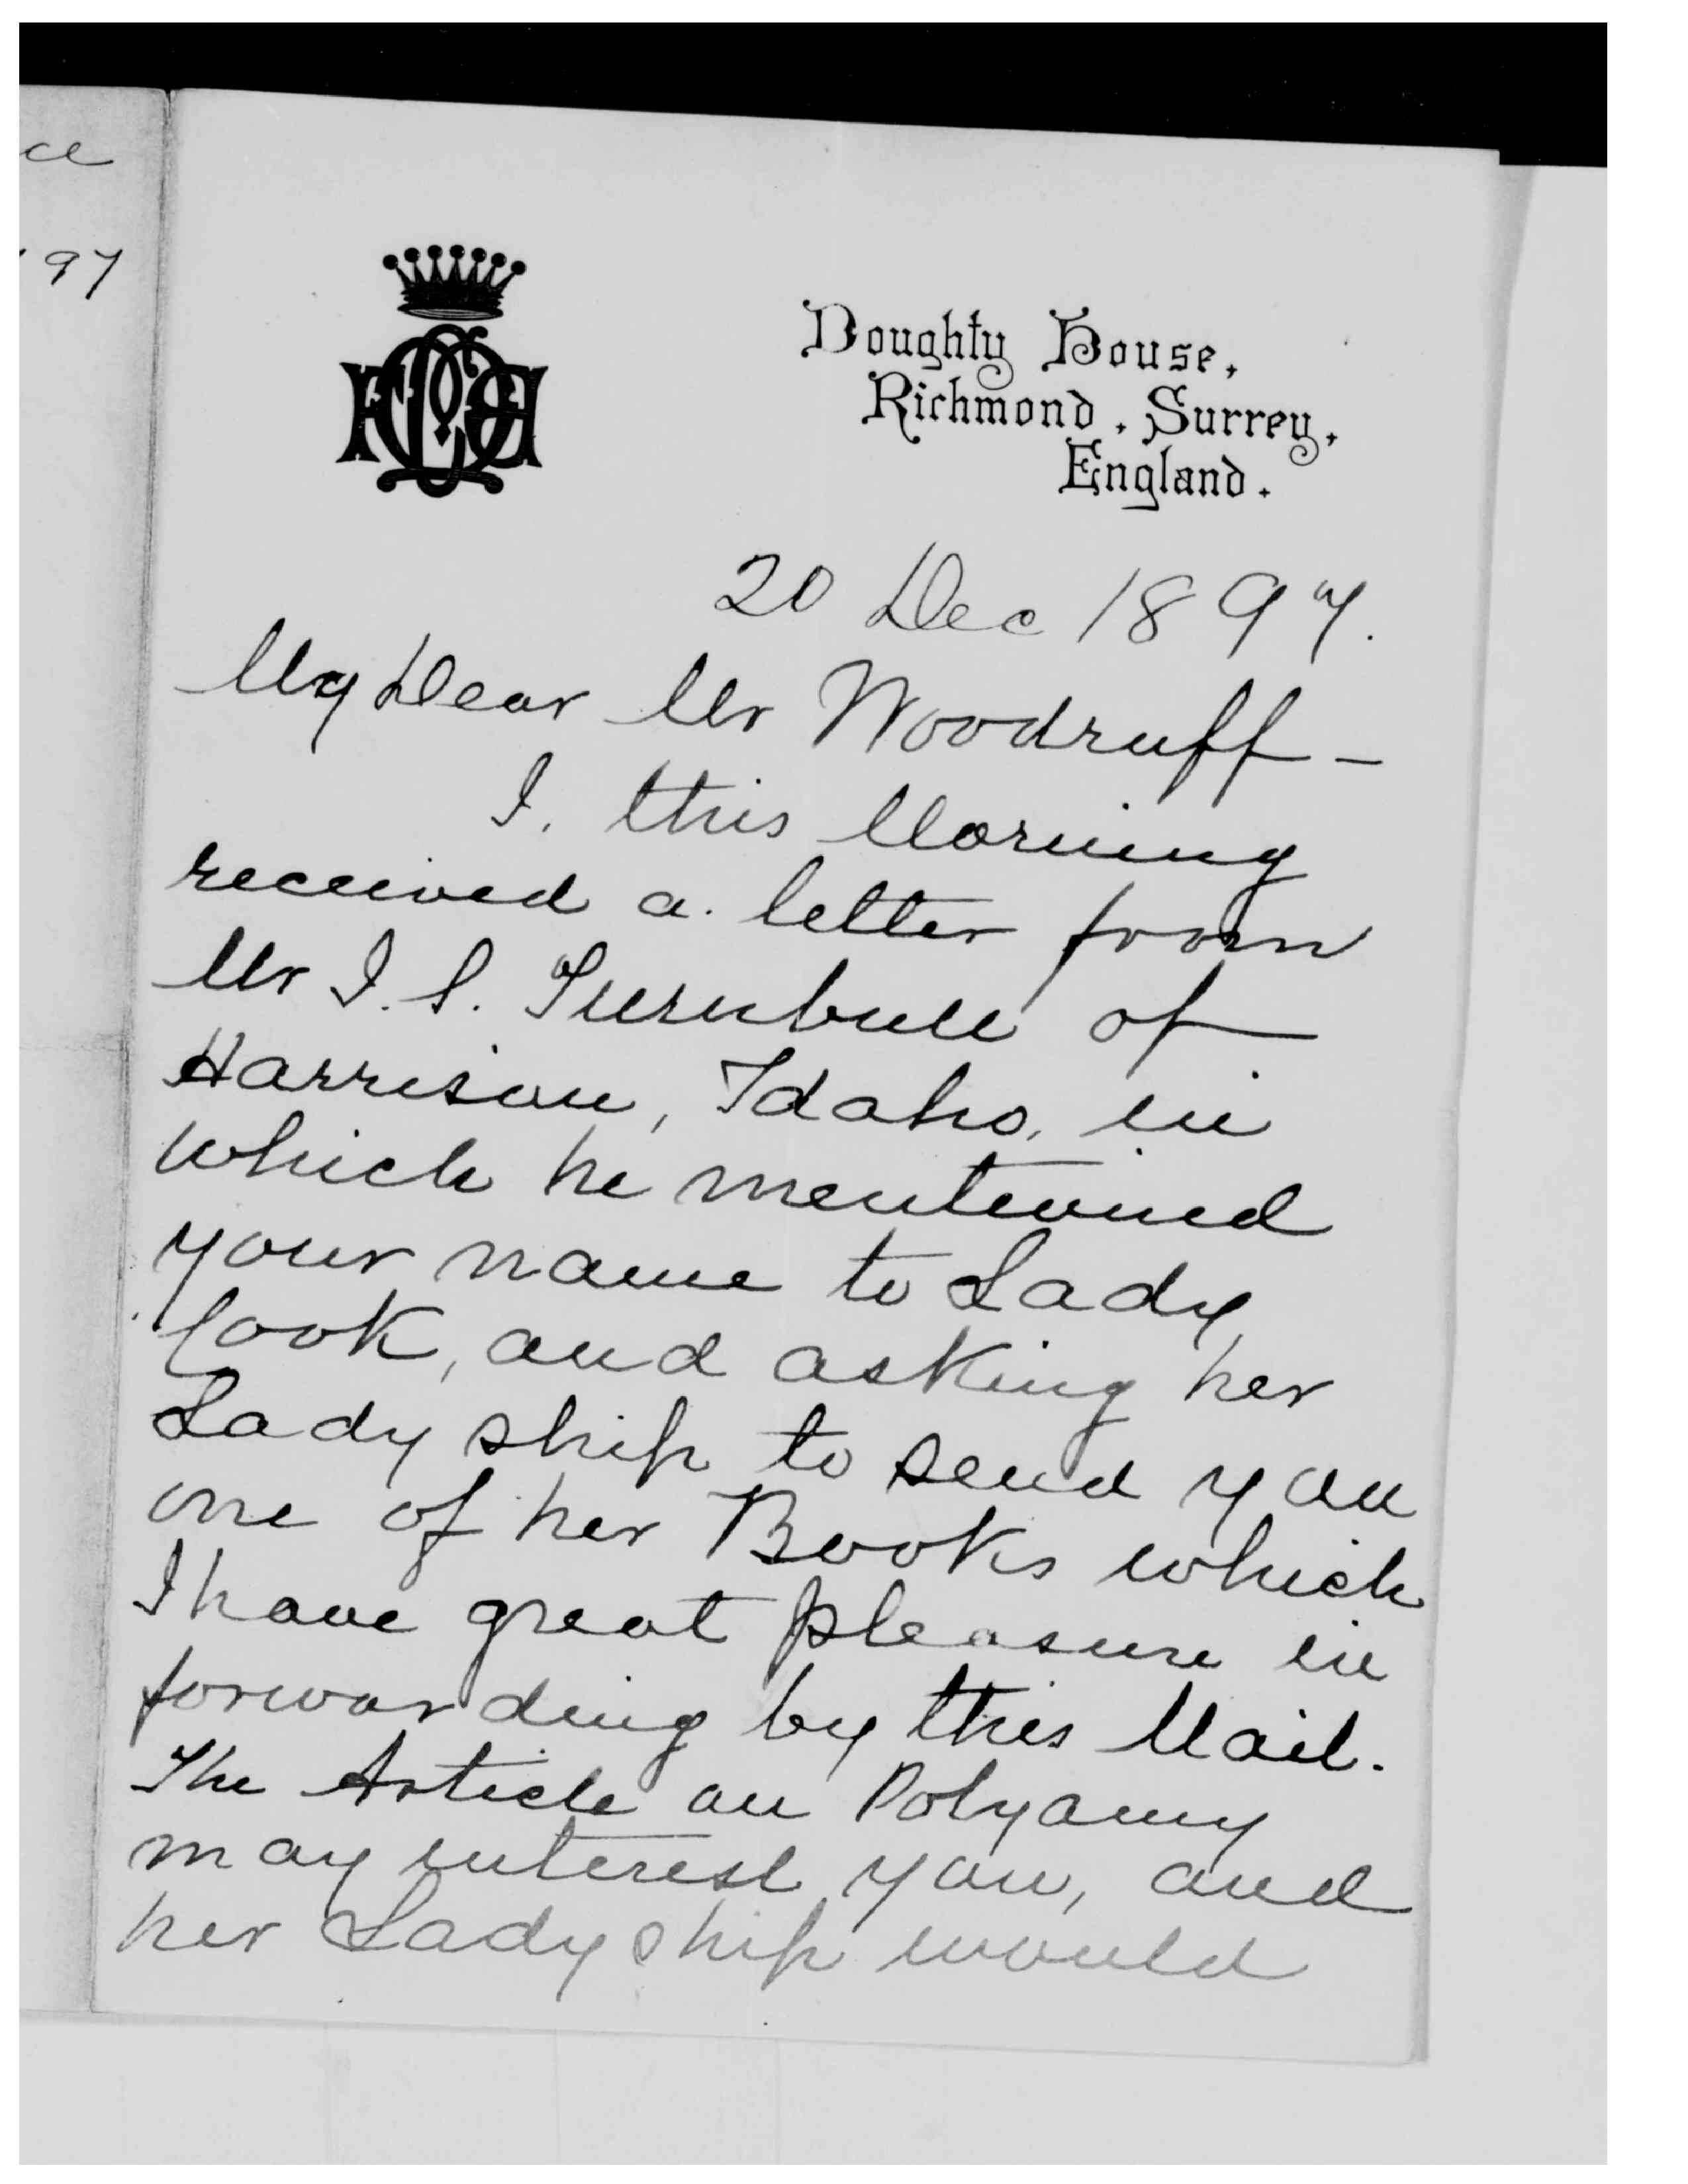 ce
97
Doughty House,
Richmond, Surrey,
England.
20 Dec 1897.
My Dear Mr Woodruff –
I. this Morning
received a letter from
Mr I. S. Turnbull of
Harrison, Idaho, in
which he mentioned
your name to Lady
Cook, and asking her
Lady ship to send you
one of her Books which
I have great pleasure in
forwarding by this Mail.
The Article on Polyamy
may interest you, and
her Lady ship would